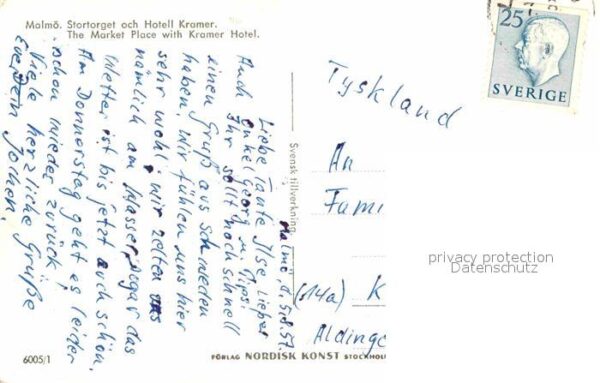 Malmö. Stortorget och Hotell Kramer.
The Market Place with Kramer Hotel.
25
SVERIGE
Tyskland
An
Fami
(14a) K
Aldinge
privacy protection
Datenschutz
Svensk tillverkning
Malmö, d. 5.8.57.
Liebe Tante Ilse, Lieber
Onkel Georg u. Pips.
Auch Ihr sollt noch schnell
einen Gruß aus Schweden
haben. Wir fühlen uns hier
sehr wohl. Wir zelten
nämlich am Wasser, sogar das
Wetter ist bis jetzt auch schön.
Am Donnerstag geht es leider
schon wieder zurück.
Viele herzliche Grüße
Jochen.
6005/1
FÖRLAG NORDISK KONST STOCKHOL